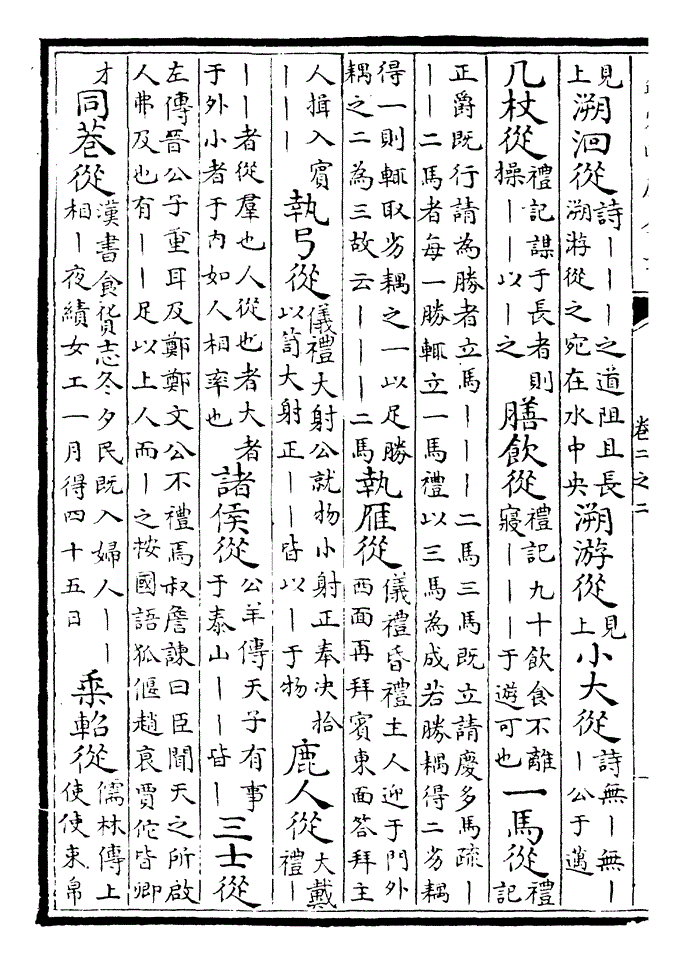 卷二之二
見上溯洄從詩丨丨丨之道阻且長溯游從之宛在水中央溯游從見上小大從詩無丨無丨丨公于邁
几杖從禮記謀于長者則操丨丨以丨之膳飲從禮記九十飲食不離寢丨丨丨于遊可也一馬從禮記
正爵既行請為勝者立馬丨丨丨二馬三馬既立請慶多馬疏丨丨丨二馬者每一勝輒立一馬禮以三馬為成若勝耦得二劣耦
得一則輒取劣耦之一以足勝耦之二為三故云丨丨丨二馬執雁從儀禮昏禮主人迎于門外西面再拜賓東面答拜主
人揖入賓丨丨丨執弓從儀禮大射公就物小射正奉决拾以笥大射正丨丨皆以丨于物鹿人從大戴禮丨
丨丨者從羣也人從也者大者于外小者于內如人相率也諸侯從公羊傳天子有事于泰山丨丨皆丨三士從
左傳晉公子重耳及鄭鄭文公不禮焉叔詹諫曰臣聞天之所啟人弗及也有丨丨足以上人而丨之按國語狐偃趙衰賈佗皆卿
才同巷從漢書食貨志冬夕民既入婦人丨丨相丨夜績女工一月得四十五日乘軺從儒林傳上使使束帛